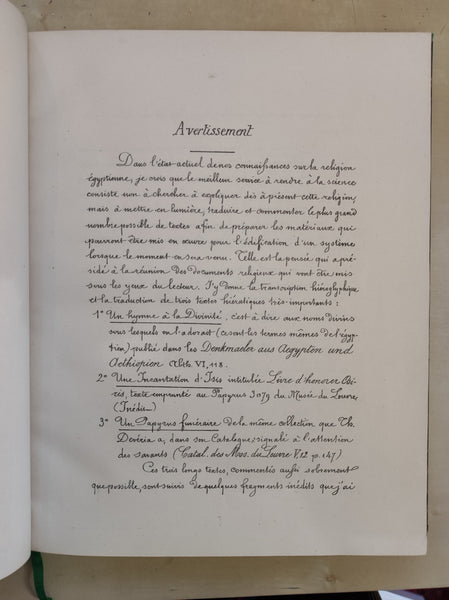 Avertissement
Dans l'état actuel de nos connaissances sur la religion
égyptienne, je crois que le meilleur service à rendre à la science
consiste non à chercher à expliquer dès à présent cette religion,
mais à mettre en lumière, traduire et commenter le plus grand
nombre possible de textes afin de préparer les matériaux qui
pourront être mis en œuvre pour l'édification d'un système
lorsque le moment en sera venu. Telle est la pensée qui a pré-
sidé à la réunion des documents religieux qui vont être mis
sous les yeux du lecteur. J'y donne la transcription hiéroglyphique
et la traduction de trois textes hiératiques très importants :
1° Un hymne à la Divinité, c'est à dire aux noms divins
sous lesquels on l'adorait (ce sont les termes mêmes de l'égyp-
tien) publié dans les Denkmaeler aus Aegypten und
Aethiopien Abth. VI, 118.
2° Une Incantation d'Isis intitulée Livre d'honorer Osi-
ris, texte emprunté au Papyrus 3079 du Musée du Louvre,
(Inédit)
3° Un Papyrus funéraire de la même collection que Th.
Devéria a, dans son Catalogue, signalé à l'attention
des savants (Catal. des Mss. du Louvre V, 12 p. 147)
Ces trois longs textes, commentés aussi sobrement
que possible, sont suivis de quelques fragments inédits que j'ai